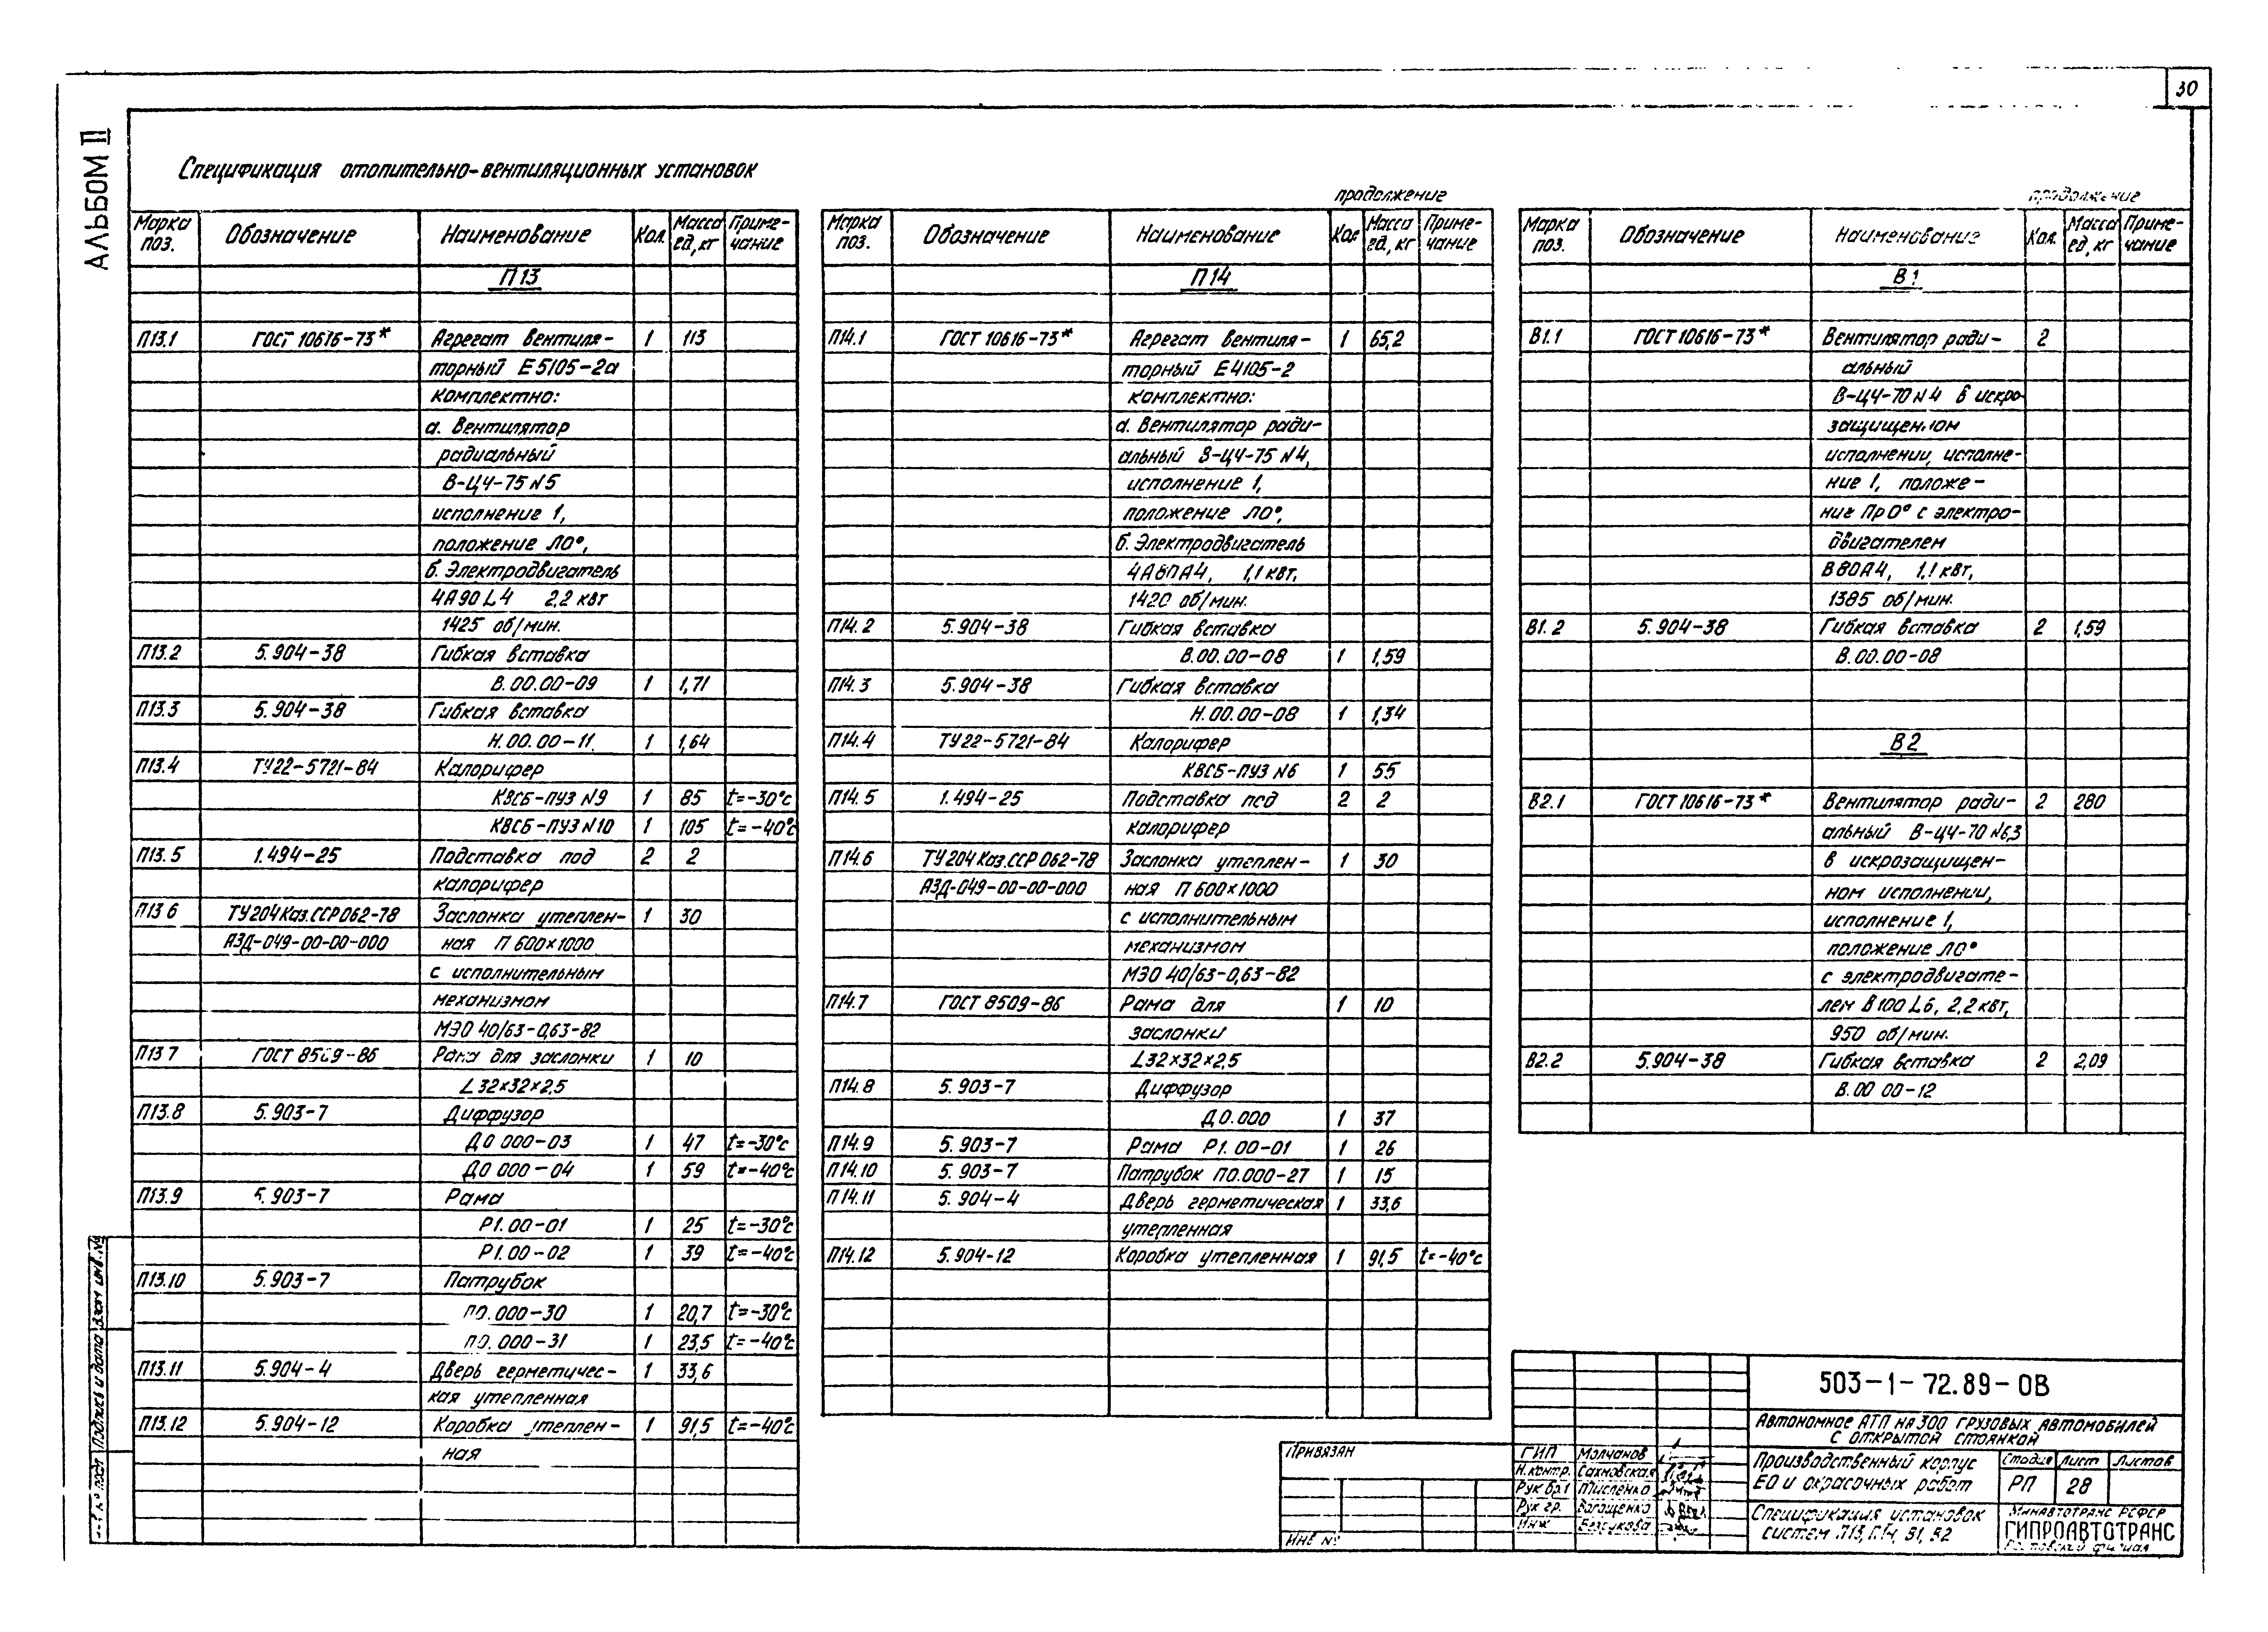 30
АЛЬБОМ II
Спецификация отопительно-вентиляционных установок
Марка поз. Обозначение Наименование Кол. Масса ед, кг Приме-чание
П13
П13.1 ГОСТ 10616-73* Агрегат вентиля- 1 113
торный Е5105-2а
комплектно:
а. Вентилятор
радиальный
В-Ц4-75 N5
исполнение 1,
положение Л0°,
б. Электродвигатель
4А90L4 2,2 квт
1425 об/мин.
П13.2 5.904-38 Гибкая вставка
В.00.00-09 1 1,71
П13.3 5.904-38 Гибкая вставка
Н.00.00-11 1 1,64
П13.4 ТУ22-5721-84 Калорифер
КВСБ-ПУЗ N9 1 85 t=-30°с
КВСБ-ПУЗ N10 1 105 t=-40°с
П13.5 1.494-25 Подставка под 2 2
калорифер
П13 6 ТУ204 Каз.ССР 062-78 Заслонка утеплен- 1 30
АЗД-049-00-00-000 ная П 600×1000
с исполнительным
механизмом
МЭО 40/63-0,63-82
П13 7 ГОСТ 8509-86 Рама для заслонки 1 10
∠32×32×2,5
П13.8 5.903-7 Диффузор
Д0 000-03 1 47 t=-30°с
Д0 000-04 1 59 t=-40°с
П13.9 5.903-7 Рама
Р1.00-01 1 25 t=-30°с
Р1.00-02 1 39 t=-40°с
П13.10 5.903-7 Патрубок
П0.000-30 1 20,7 t=-30°с
П0.000-31 1 23,5 t=-40°с
П13.11 5.904-4 Дверь герметичес- 1 33,6
кая утепленная
П13.12 5.904-12 Коробка утеплен- 1 91,5 t=-40°с
ная
продолжение
Марка поз. Обозначение Наименование Кол Масса ед, кг Приме-чание
П14
П14.1 ГОСТ 10616-73* Агрегат вентиля- 1 65,2
торный Е4105-2
комплектно:
а. Вентилятор ради-
альный В-Ц4-75 N4,
исполнение 1,
положение Л0°,
б. Электродвигатель
4А80А4, 1,1 квт,
1420 об/мин.
П14.2 5.904-38 Гибкая вставка
В.00.00-08 1 1,59
П14.3 5.904-38 Гибкая вставка
Н.00.00-08 1 1,34
П14.4 ТУ22-5721-84 Калорифер
КВСБ-ПУЗ N6 1 55
П14.5 1.494-25 Подставка под 2 2
калорифер
П14.6 ТУ204 Каз.ССР 062-78 Заслонка утеплен- 1 30
АЗД-049-00-00-000 ная П 600×1000
с исполнительным
механизмом
МЭО 40/63-0,63-82
П14.7 ГОСТ 8509-86 Рама для 1 10
заслонки
∠32×32×2,5
П14.8 5.903-7 Диффузор
Д0.000 1 37
П14.9 5.903-7 Рама Р1.00-01 1 26
П14.10 5.903-7 Патрубок П0.000-27 1 15
П14.11 5.904-4 Дверь герметическая 1 33,6
утепленная
П14.12 5.904-12 Коробка утепленная 1 91,5 t=-40°с
продолжение
Марка поз. Обозначение Наименование Кол. Масса ед, кг Приме-чание
В1
В1.1 ГОСТ 10616-73* Вентилятор ради- 2
альный
В-Ц4-70 N4 в искро-
защищенном
исполнении, исполне-
ние 1, положе-
ние Пр0° с электро-
двигателем
В80А4, 1,1 квт,
1385 об/мин.
В1.2 5.904-38 Гибкая вставка 2 1,59
В.00.00-08
В2
В2.1 ГОСТ 10616-73* Вентилятор ради- 2 280
альный В-Ц4-70 N6,3
в искрозащищен-
ном исполнении,
исполнение 1,
положение Л0°
с электродвигате-
лем В100L6, 2,2 квт,
950 об/мин.
В2.2 5.904-38 Гибкая вставка 2 2,09
В.00 00-12
503-1-72.89-ОВ
Автономное АТП на 300 грузовых автомобилей
с открытой стоянкой
Производственный корпус
ЕО и окрасочных работ
Стадия Лист Листов
РП 28
Спецификация установок
систем П13, П14, В1, В2
Минавтотранс РСФСР
ГИПРОАВТОТРАНС
Ростовский филиал
ГИП Молчанов
Н.контр. Сахновская
Рук бр.1 Мисленко
Рук гр. Ващенко
Инж
Привязан
ИНВ №
Взам инв.№
Подпись и дата